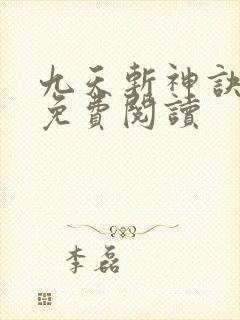 九天斬神訣
免費閱讀
李磊